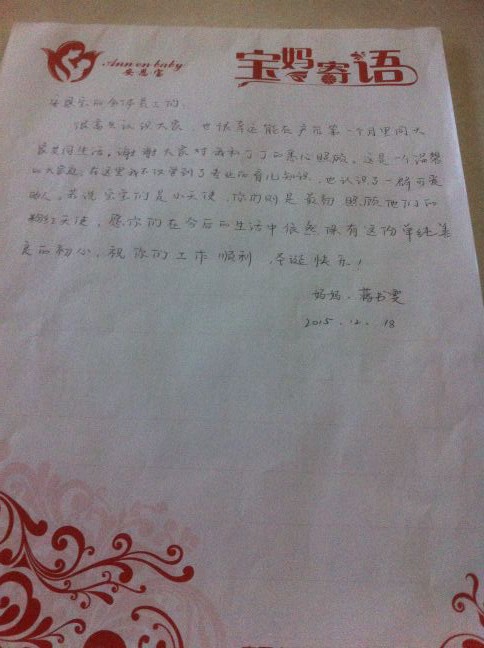 Annen baby
安恩宝
宝妈寄语
安恩宝的全体员工们:
很高兴认识大家,也很幸运能在产后第一个月里同大
家共同生活,谢谢大家对我和丁丁的悉心照顾,这是一个温馨
的大家庭,在这里我不仅学到了专业的育儿知识,也认识了一群可爱
的人,若说宝宝们是小天使,你们则是最初照顾他们的
粉红天使,愿你们在今后的生活中依然保有这份单纯善
良的初心,祝你们工作顺利,圣诞快乐!
妈妈:蒋书雯
2015.12.18